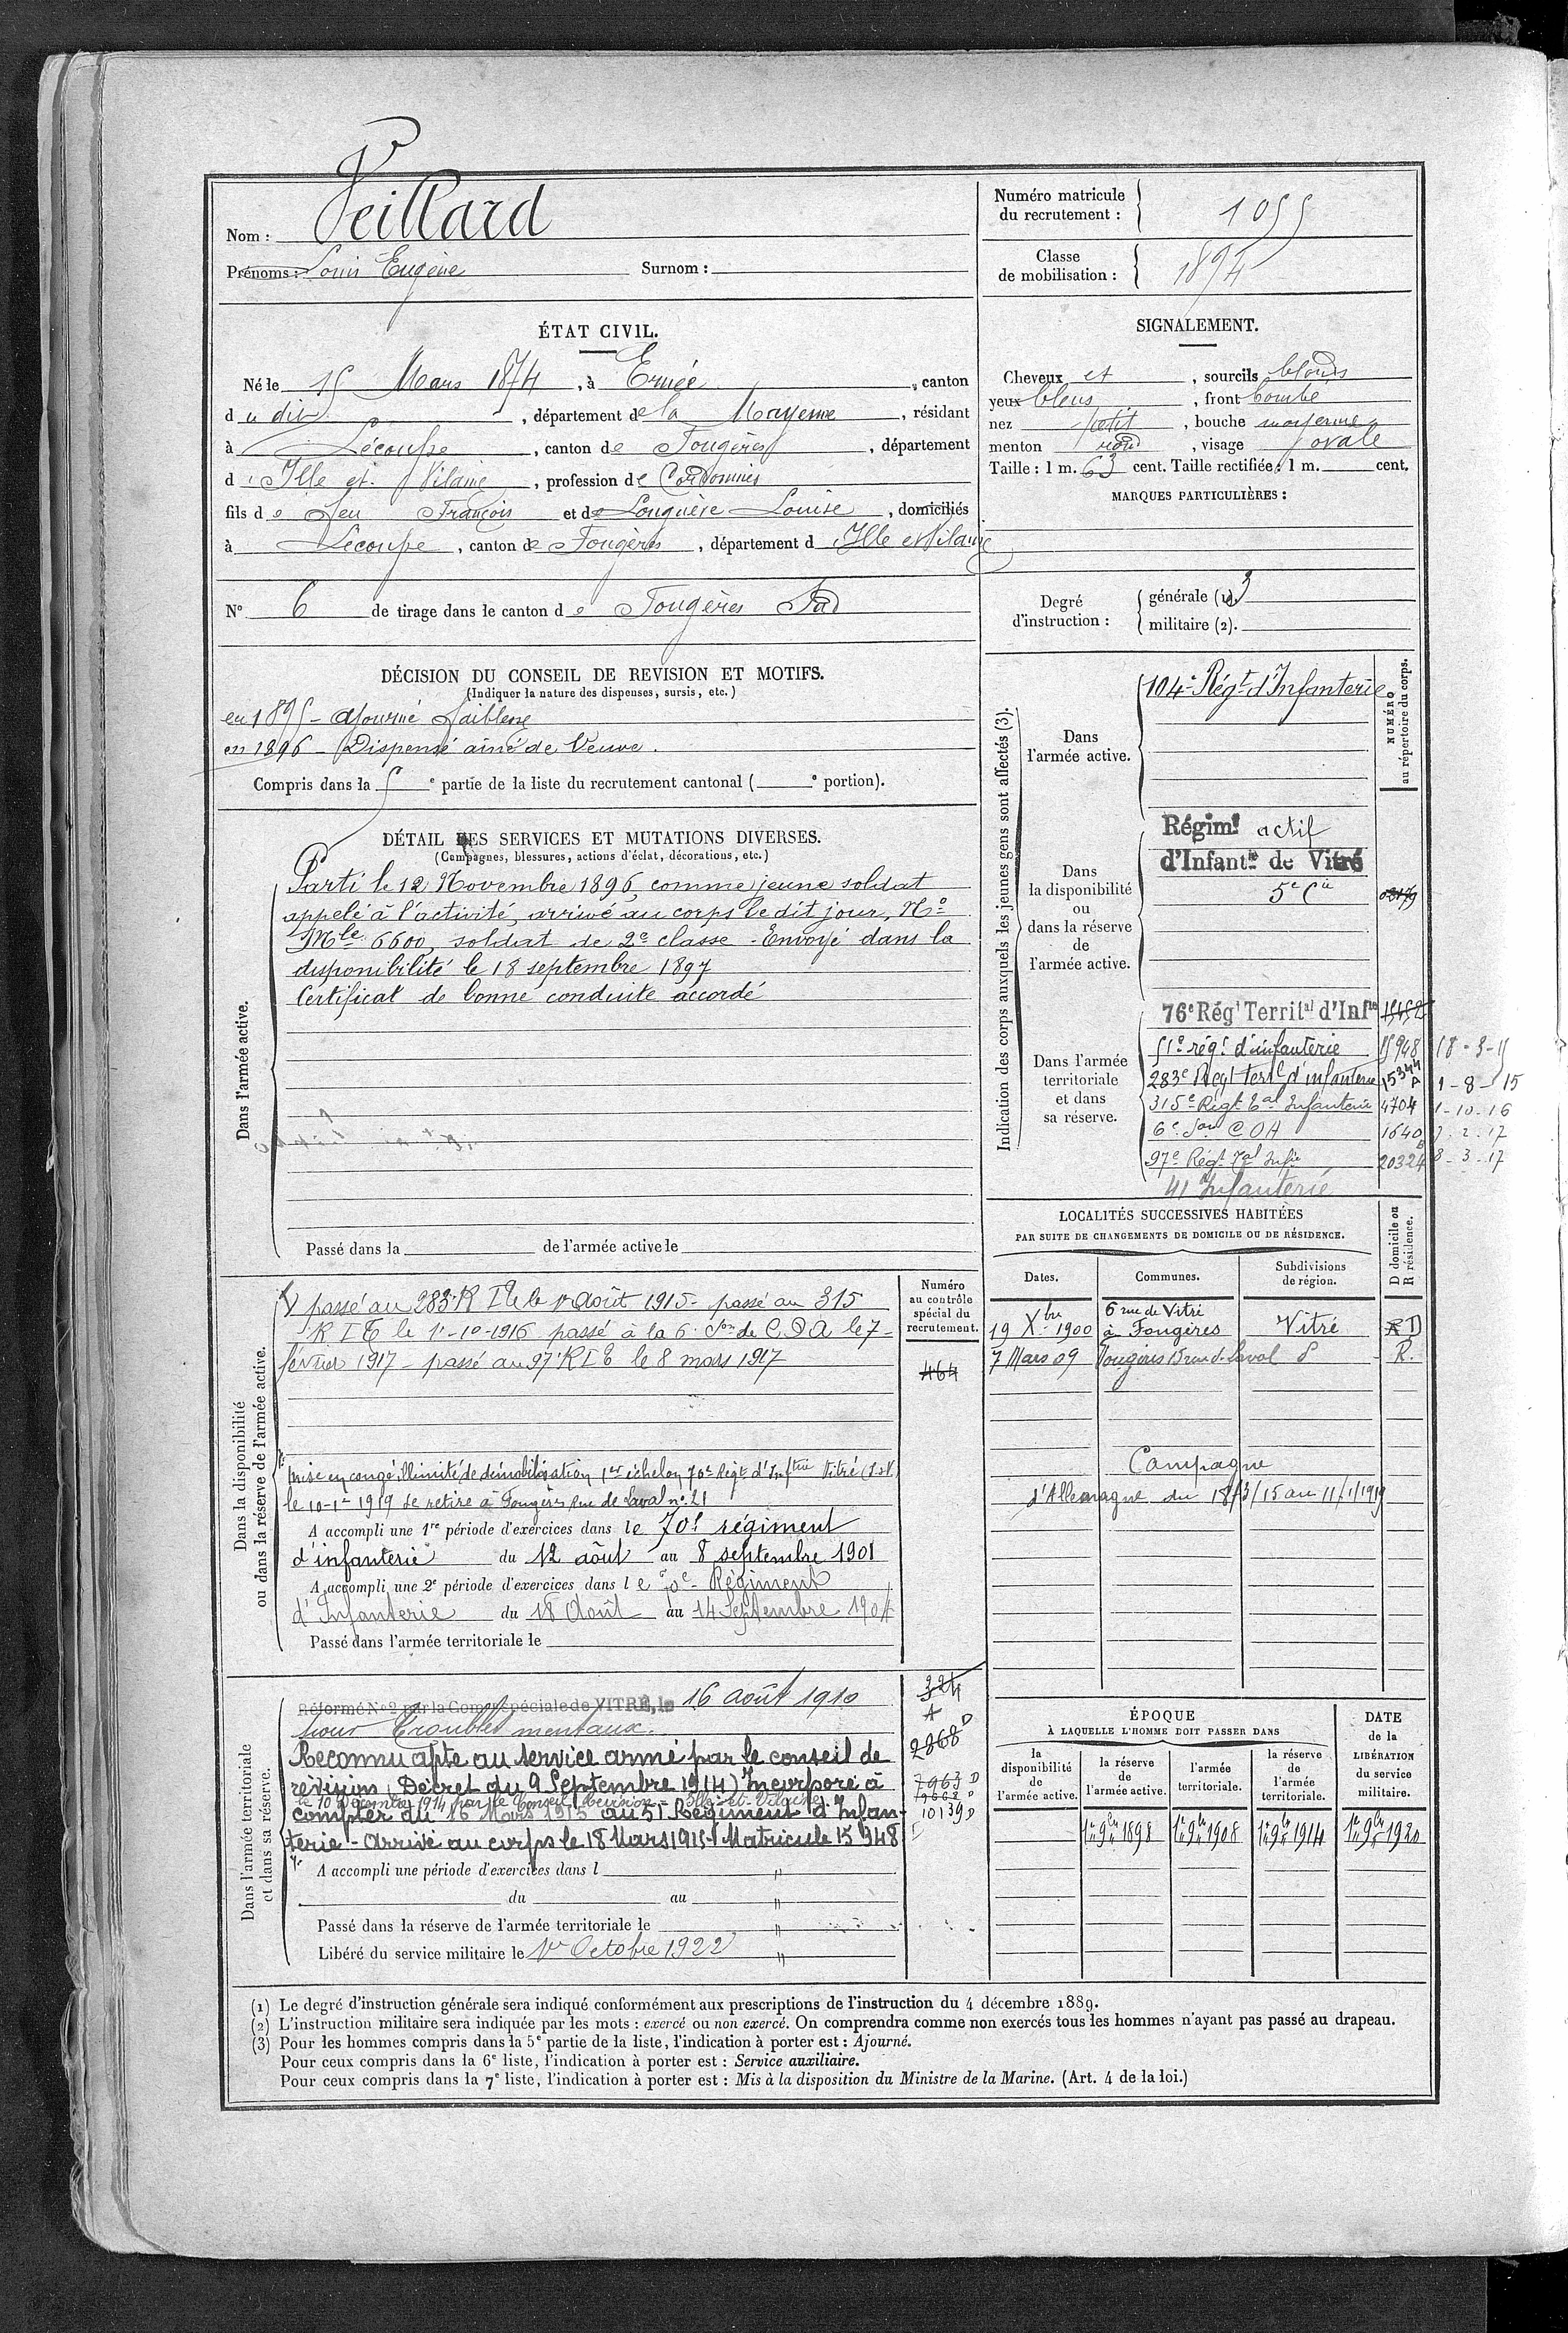 Nom : Veillard
Prénoms : Louis Eugène Surnom :
Numéro matricule du recrutement : 1055
Classe de mobilisation : 1894
ÉTAT CIVIL.
Né le 15 Mars 1874, à Ernée, canton
du dit, département de la Mayenne, résidant
à Lécousse, canton de Fougères, département
d'Ille et Vilaine, profession de Cordonnier
fils de feu François et de Louise, domiciliés
à Lécousse, canton de Fougères, département d Ille et Vilaine
N° 6 de tirage dans le canton de Fougères Sud
SIGNALEMENT.
Cheveux et, sourcils blonds
yeux bleus, front bombé
nez petit, bouche moyenne
menton rond, visage ovale
Taille : 1 m. 63 cent. Taille rectifiée : 1 m. cent.
MARQUES PARTICULIÈRES :
Degré d'instruction : générale (1). 3
militaire (2).
DÉCISION DU CONSEIL DE REVISION ET MOTIFS.
(Indiquer la nature des dispenses, sursis, etc.)
en 1895 - Ajourné faiblesse
en 1896 - Dispensé aîné de Veuve.
Compris dans la 5e partie de la liste du recrutement cantonal ( e portion).
DÉTAIL DES SERVICES ET MUTATIONS DIVERSES.
(Campagnes, blessures, actions d'éclat, décorations, etc.)
Dans l'armée active.
Parti le 12 Novembre 1896, comme jeune soldat
appelé à l'activité, arrivé au corps le dit jour, No
Mle 6600, soldat de 2e classe - Envoyé dans la
disponibilité le 18 septembre 1897
Certificat de bonne conduite accordé
Passé dans la de l'armée active le
Indication des corps auxquels les jeunes gens sont affectés (3).
NUMÉRO au répertoire du corps.
Dans l'armée active.
104e Régt d'Infanterie
Dans la disponibilité ou dans la réserve de l'armée active.
Régimt actif
d'Infantie de Vitré
5e Cie
Dans l'armée territoriale et dans sa réserve.
76e Régt Territal d'Infie 15152
51e régt d'infanterie 15948 18-3-15
283e Regt terral d'infanterie 15344 A 1-8-15
315e Regt Tal Infanterie 4704 1-10-16
6e Son COA 1640 B 7.2.17
97e Régt Tal Infie 20324 8-3-17
41 Infanterie
LOCALITÉS SUCCESSIVES HABITÉES
PAR SUITE DE CHANGEMENTS DE DOMICILE OU DE RÉSIDENCE.
Dates. Communes. Subdivisions de région. D domicile ou R résidence.
19 Xbre 1900 6 rue de Vitré à Fougères Vitré R D
7 Mars 09 Fougères 15 rue de Laval R.
Campagne
d'Allemagne du 18/3/15 au 11/1/1919
Dans la disponibilité ou dans la réserve de l'armée active.
Numéro au contrôle spécial du recrutement.
464
passé au 283 R I T le 1r Août 1915 - passé au 315
R I T le 1r-10-1916 passé à la 6e Son de C O A le 7
février 1917 - passé au 97e R I T le 8 mars 1917
mise en congé illimité de démobilisation 1er échelon 70e Régt d'Inftrie Vitré (I.&V.)
le 10-1er 1919 se retire à Fougères Rue de Laval no 21
A accompli une 1re période d'exercices dans le 70e régiment
d'infanterie du 12 août au 8 septembre 1901
A accompli une 2e période d'exercices dans le 70e Régiment
d'Infanterie du 18 Août au 14 Septembre 1904
Passé dans l'armée territoriale le
Dans l'armée territoriale et dans sa réserve.
Réformé No 2 par la Comon spéciale de VITRÉ, le 16 août 1910
pour Troubles mentaux.
Reconnu apte au service armé par le conseil de
revision (Décret du 9 Septembre 1914) Incorporé à
le 10 Décembre 1914 par le Conseil de Revision - Ille-et-Vilaine
compter du 16 Mars 1915 au 51e Régiment d'Infan-
terie - Arrivé au corps le 18 Mars 1915 - Matricule 15948
324
A
2868 D
7963 D
10139 D
A accompli une période d'exercices dans l
du au
Passé dans la réserve de l'armée territoriale le
Libéré du service militaire le 1er Octobre 1922
ÉPOQUE
À LAQUELLE L'HOMME DOIT PASSER DANS
la disponibilité de l'armée active.
la réserve de l'armée active.
l'armée territoriale.
la réserve de l'armée territoriale.
DATE de la LIBÉRATION du service militaire.
1er 9bre 1898
1er 9bre 1908
1er 9bre 1914
1er 9bre 1920
(1) Le degré d'instruction générale sera indiqué conformément aux prescriptions de l'instruction du 4 décembre 1889.
(2) L'instruction militaire sera indiquée par les mots : exercé ou non exercé. On comprendra comme non exercés tous les hommes n'ayant pas passé au drapeau.
(3) Pour les hommes compris dans la 5e partie de la liste, l'indication à porter est : Ajourné.
Pour ceux compris dans la 6e liste, l'indication à porter est : Service auxiliaire.
Pour ceux compris dans la 7e liste, l'indication à porter est : Mis à la disposition du Ministre de la Marine. (Art. 4 de la loi.)